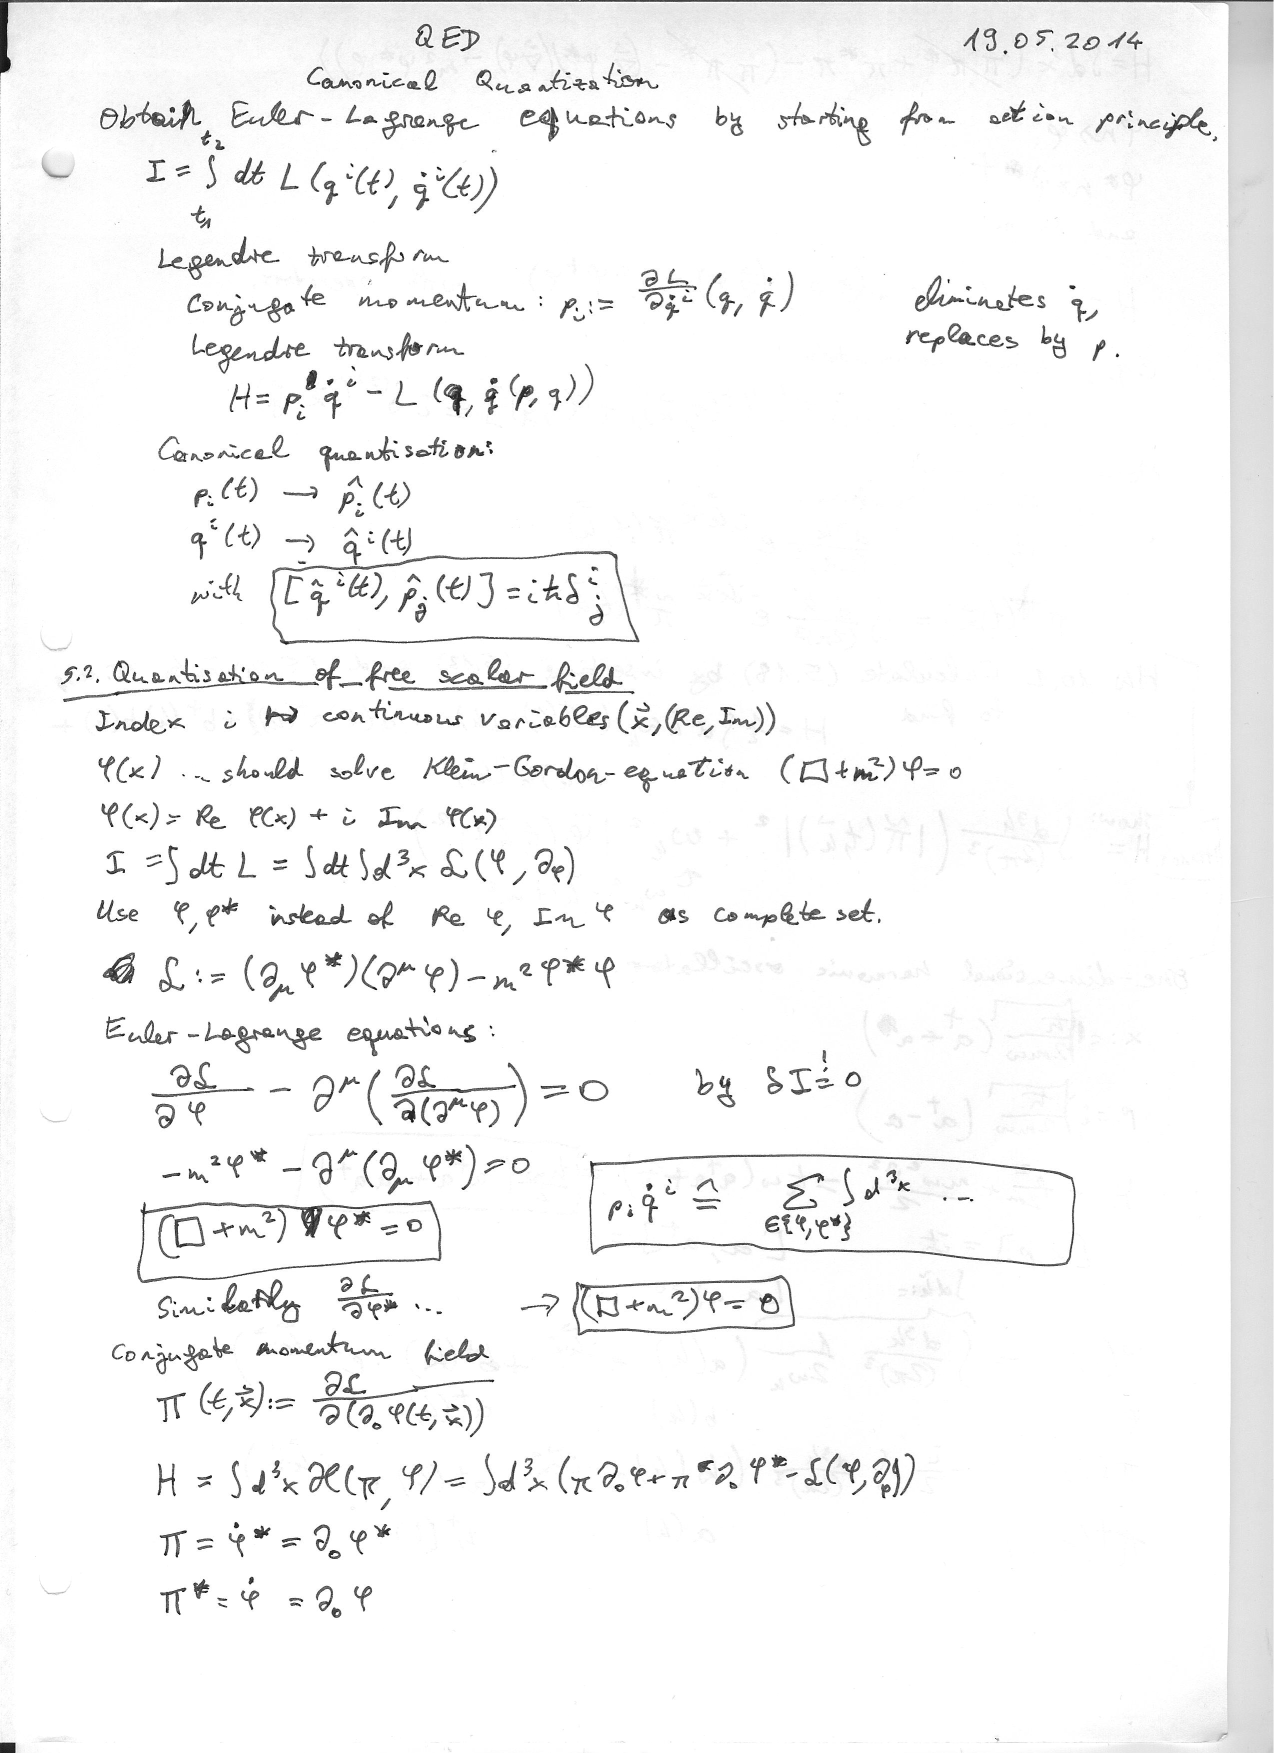 QED 19.05.2014
Canonical Quantization
Obtain Euler-Lagrange equations by starting from action principle.
I = ∫_{t₁}^{t₂} dt L (qⁱ(t), q̇ⁱ(t))
Legendre transform
Conjugate momentum: pᵢ := ∂L/∂q̇ⁱ (q, q̇) eliminates q̇,
replaces by p.
Legendre transform
H = pᵢ q̇ⁱ − L (q, q̇(p, q))
Canonical quantisation:
pᵢ(t) → p̂ᵢ(t)
qⁱ(t) → q̂ⁱ(t)
with [q̂ⁱ(t), p̂ⱼ(t)] = iħδⁱⱼ
5.2. Quantisation of free scalar field
Index i ↦ continuous variables (x⃗, (Re, Im))
φ(x) ... should solve Klein-Gordon-equation (□ + m²)φ = 0
φ(x) = Re φ(x) + i Im φ(x)
I = ∫dt L = ∫dt ∫d³x ℒ(φ, ∂φ)
Use φ, φ* instead of Re φ, Im φ as complete set.
ℒ := (∂_μ φ*)(∂^μ φ) − m² φ* φ
Euler-Lagrange equations:
∂ℒ/∂φ − ∂^μ (∂ℒ/∂(∂^μ φ)) = 0 by δI =! 0
−m² φ* − ∂^μ(∂_μ φ*) = 0
(□ + m²) φ* = 0 pᵢ q̇ⁱ ≙ Σ_{∈{φ,φ*}} ∫d³x ...
Similarly ∂ℒ/∂φ* ... → (□ + m²)φ = 0
Conjugate momentum field
π (t, x⃗) := ∂ℒ/∂(∂₀ φ(t, x⃗))
H = ∫d³x ℋ(π, φ) = ∫d³x (π ∂₀φ + π* ∂₀ φ* − ℒ(φ, ∂φ))
π = φ̇* = ∂₀ φ*
π* = φ̇ = ∂₀ φ